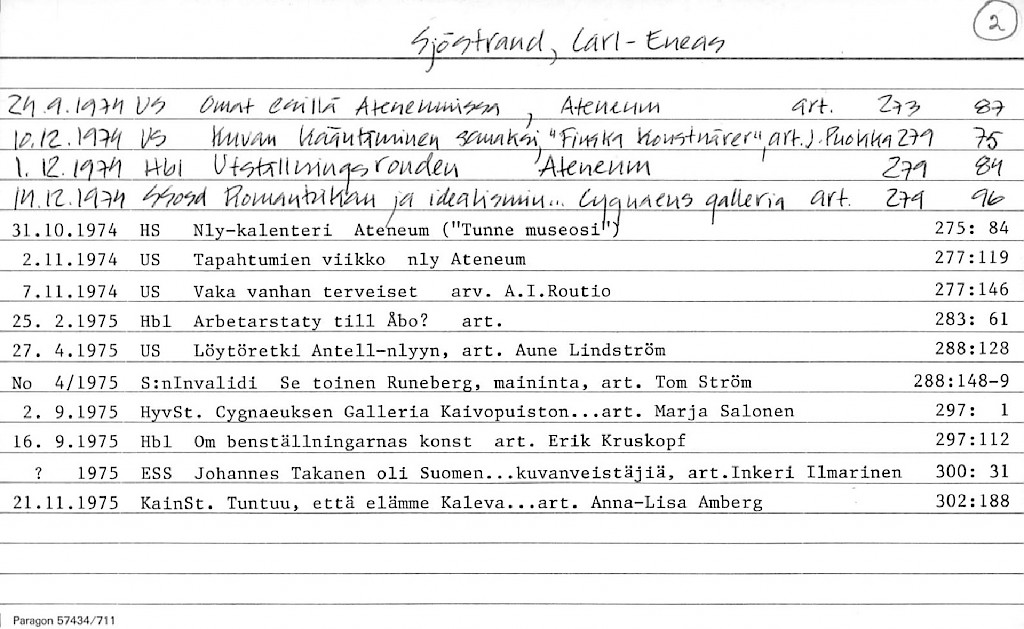 2
Sjöstrand, Carl-Eneas
24.9.1974 US Omat esillä Ateneumissa, Ateneum art. 273 87
10.12.1974 US Kuvan kääntäminen sanaksi, "Finska Konstnärer", art. J. Puokka 279 75
1.12.1974 Hbl Utställningsronden Ateneum 279 84
14.12.1974 SSosd Romantiikan ja idealismin... Cygnaeus galleria art. 279 96
31.10.1974 HS Nly-kalenteri Ateneum ("Tunne museosi") 275: 84
2.11.1974 US Tapahtumien viikko nly Ateneum 277:119
7.11.1974 US Vaka vanhan terveiset arv. A.I.Routio 277:146
25. 2.1975 Hbl Arbetarstaty till Åbo? art. 283: 61
27. 4.1975 US Löytöretki Antell-nlyyn, art. Aune Lindström 288:128
No 4/1975 S:nInvalidi Se toinen Runeberg, maininta, art. Tom Ström 288:148-9
2. 9.1975 HyvSt. Cygnaeuksen Galleria Kaivopuiston...art. Marja Salonen 297: 1
16. 9.1975 Hbl Om benställningarnas konst art. Erik Kruskopf 297:112
? 1975 ESS Johannes Takanen oli Suomen...kuvanveistäjiä, art.Inkeri Ilmarinen 300: 31
21.11.1975 KainSt. Tuntuu, että elämme Kaleva...art. Anna-Lisa Amberg 302:188
Paragon 57434/711